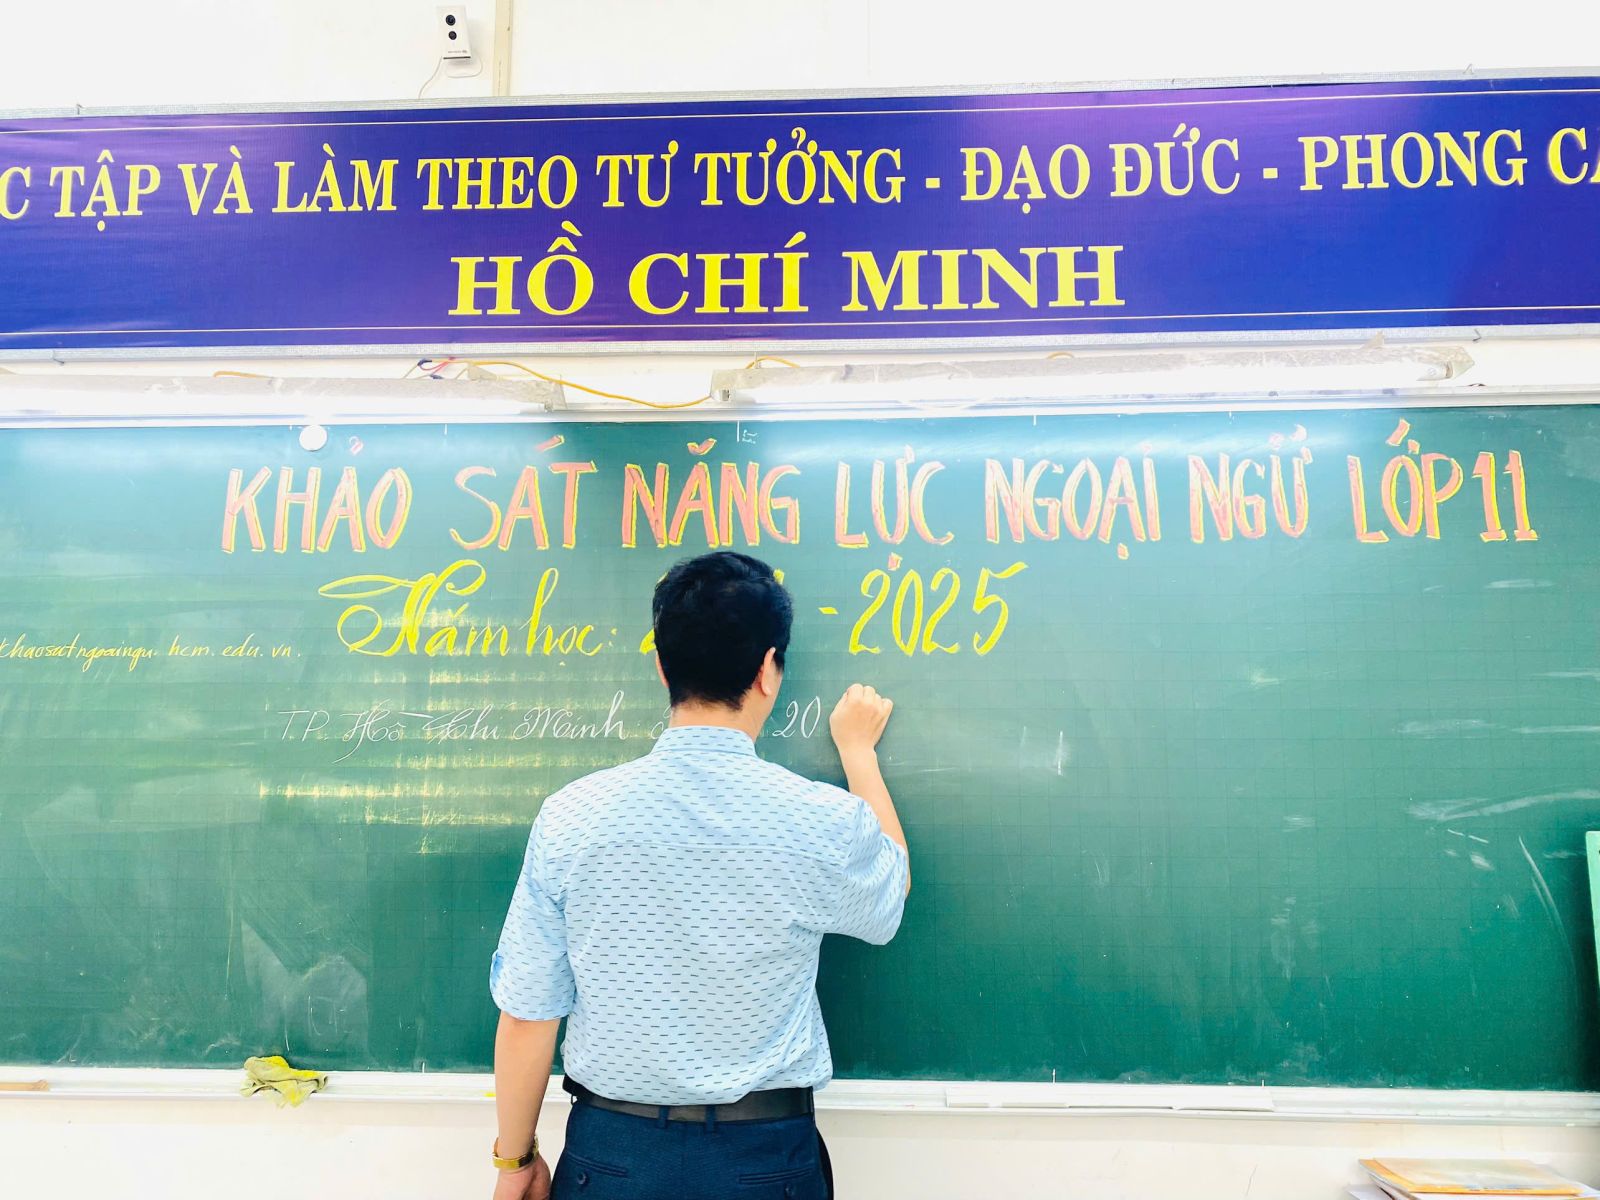 C TẬP VÀ LÀM THEO TƯ TƯỞNG - ĐẠO ĐỨC - PHONG CÁ
HỒ CHÍ MINH
KHẢO SÁT NĂNG LỰC NGOẠI NGỮ LỚP 11
Năm học: 2 -2025
khaosatngoaingu.hcm.edu.vn.
T.P. Hồ Chí Minh 20